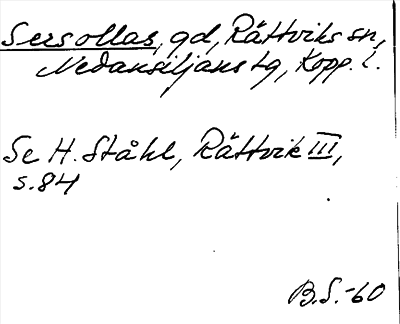 Sersollas, gd, Rättviks sn,
Nedansiljans tg, Kopp. l.
Se H. Ståhl, Rättvik III,
s. 84
B.S. -60